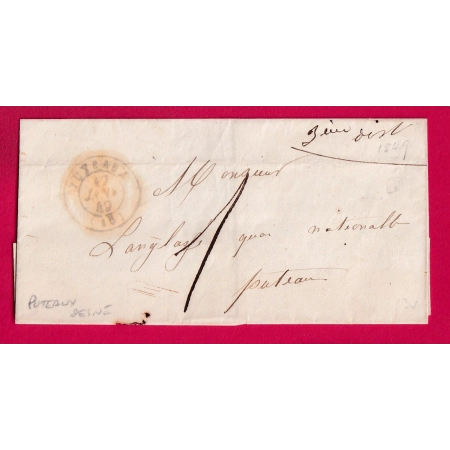 3ème dist
1849
PUTEAUX
49
Monsieur
Langlage quai nationalle
puteau
PUTEAUX
SEINE